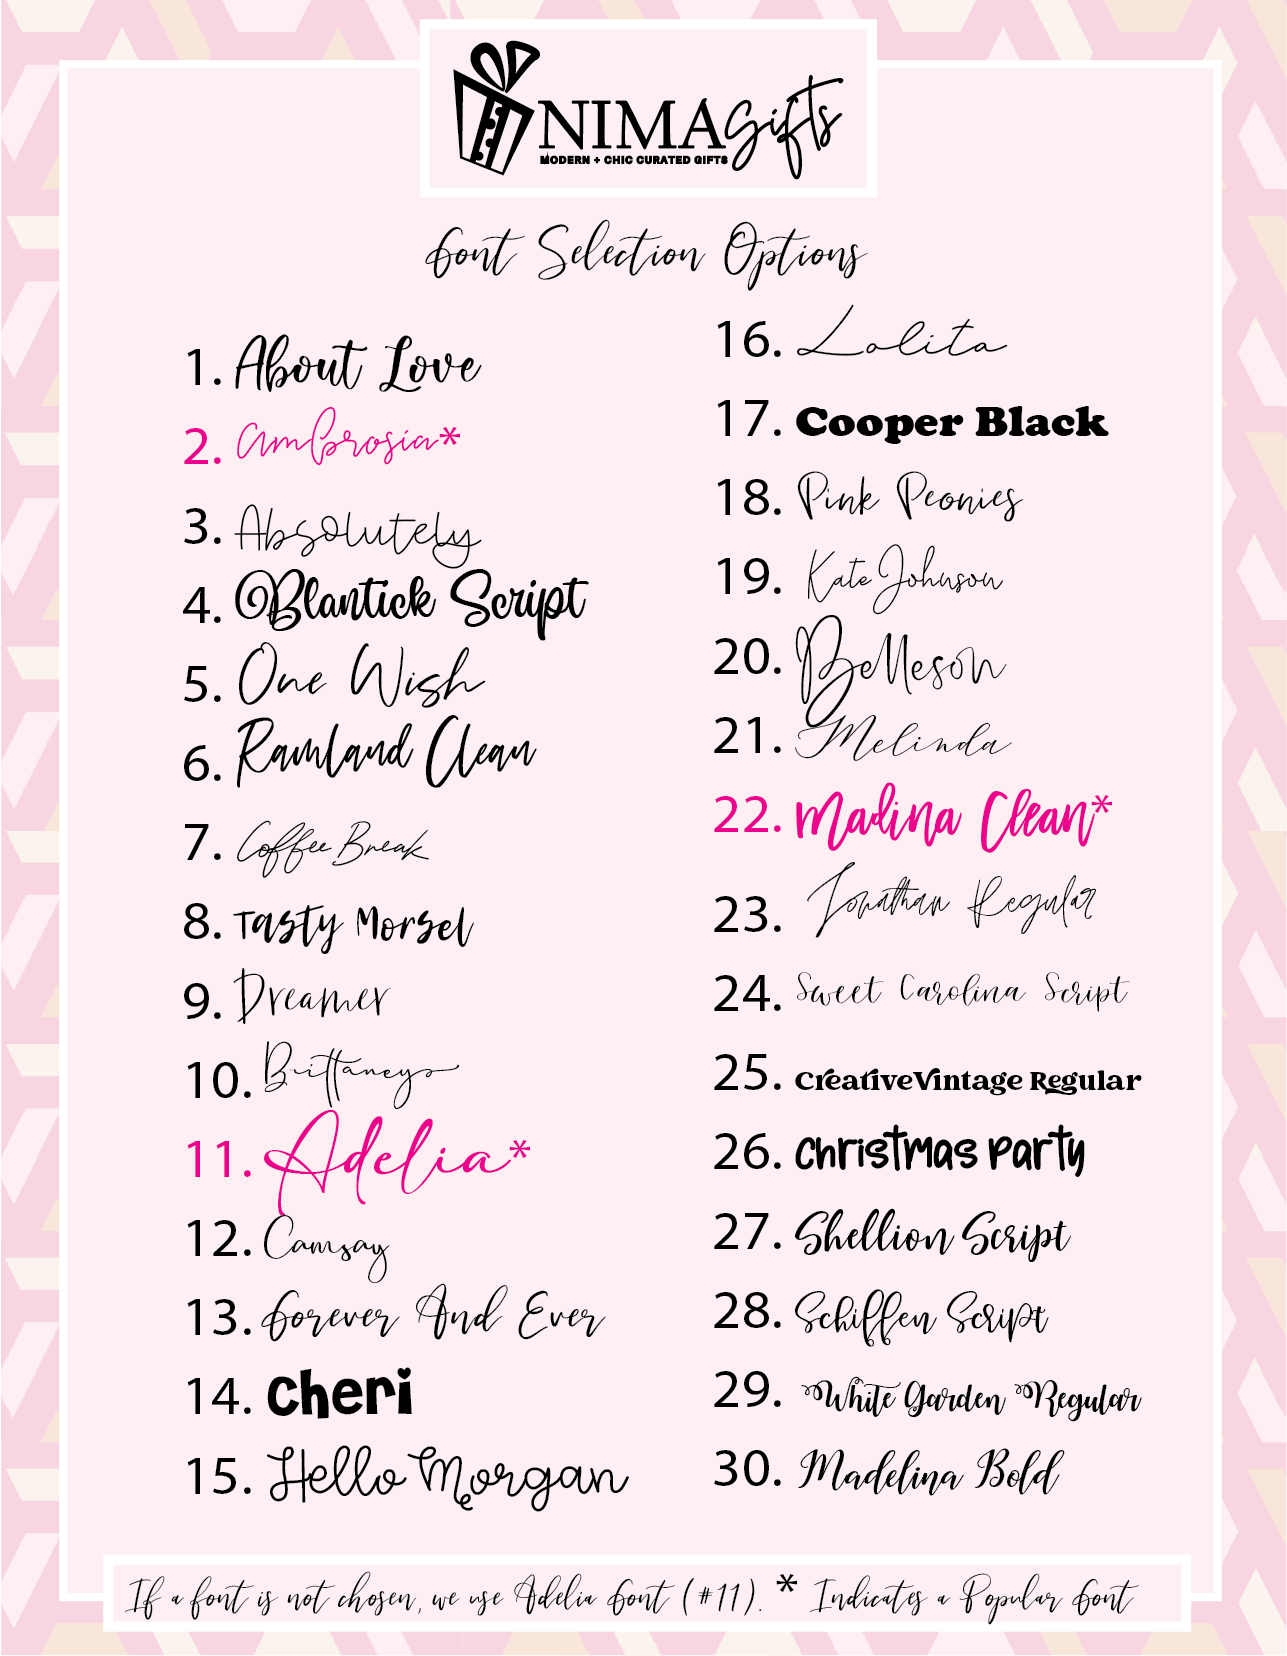 NIMAGifts
MODERN + CHIC CURATED GIFTS
Font Selection Options
1. About Love
2. Ambrosia*
3. Absolutely
4. Blantick Script
5. One Wish
6. Ramland Clean
7. Coffee Break
8. Tasty Morsel
9. Dreamer
10. Brittaneys
11. Adelia*
12. Camsay
13. Forever And Ever
14. Cheri
15. Hello Morgan
16. Lolita
17. Cooper Black
18. Pink Peonies
19. Kate Johnson
20. Belleson
21. Melinda
22. Madina Clean*
23. Jonathan Regular
24. Sweet Carolina Script
25. CreativeVintage Regular
26. Christmas Party
27. Shellion Script
28. Schiffen Script
29. White Garden Regular
30. Madelina Bold
If a font is not chosen, we use Adelia Font (#11). * Indicates a Popular Font